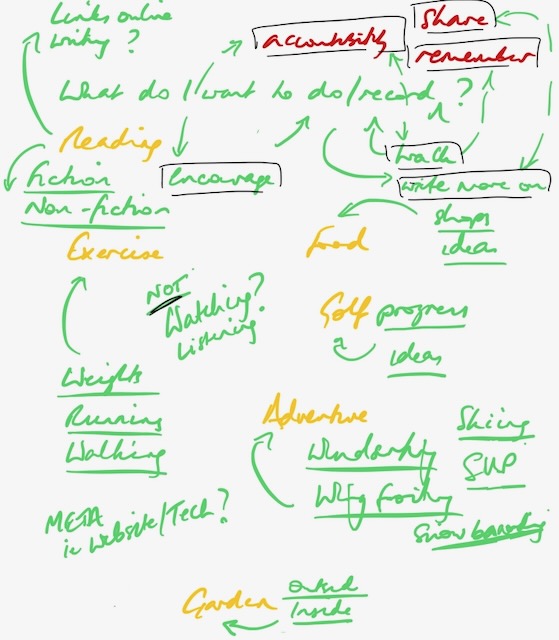 Links online
writing ?
accountability
share
remember
What do I want to do/record ?
Reading
fiction
Non-fiction
encourage
track
write more on
shops
ideas
Food
Exercise
NOT
Watching?
Listening
Golf progress
ideas
Weights
Running
Walking
Adventure
Windsurfing
Wing foiling
Skiing
SUP
Snowboarding
META
ie website/Tech?
Garden
Outside
Inside